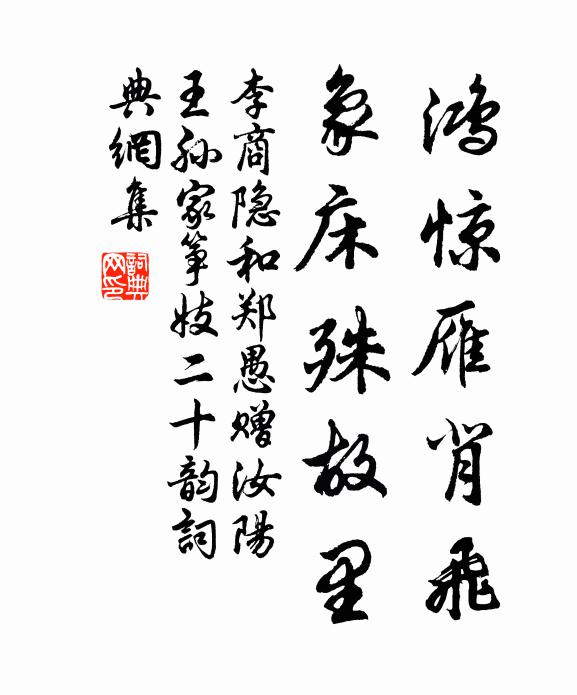 鸿惊雁背飛
象床殊故里
李商隐和郑愚赠汝陽
王孙家筝妓二十韵詞
典網集
詞典
网印